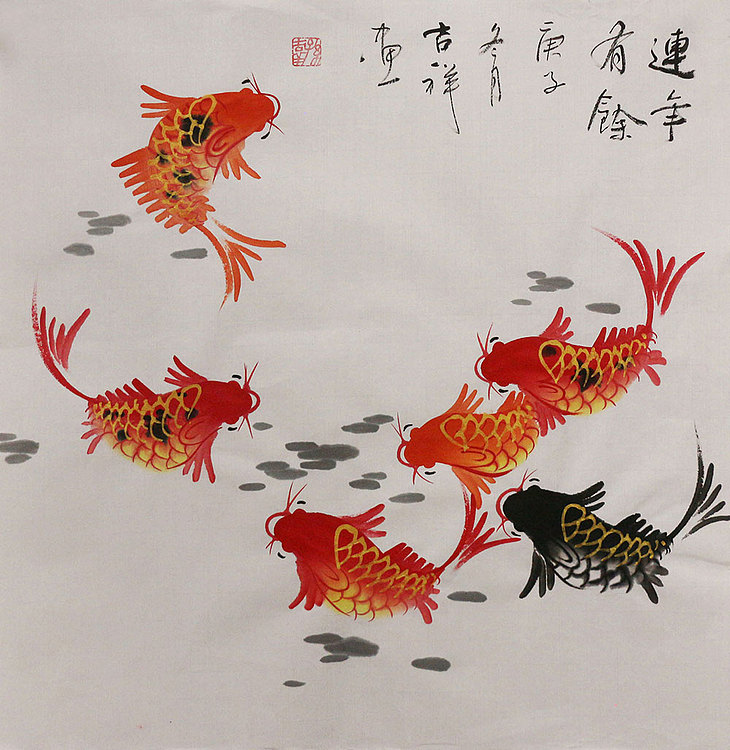 連年
有餘
庚子
冬月
吉祥
畫